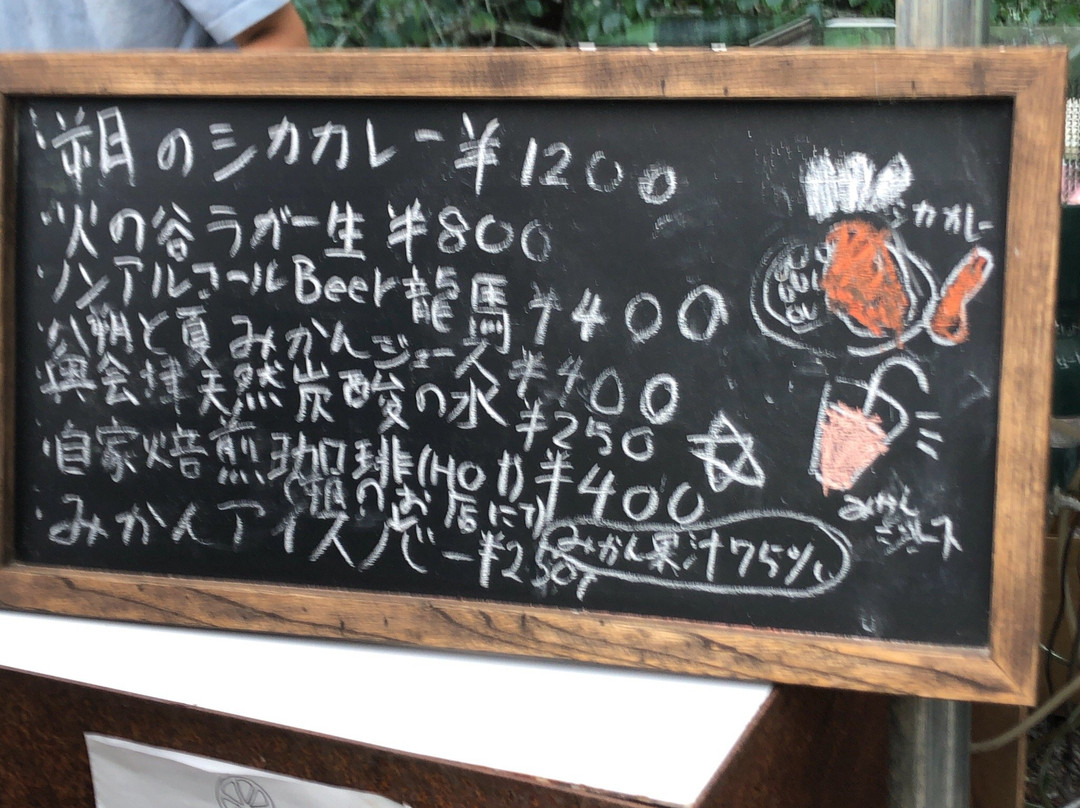 ・朔のシカカレー ¥1200
・火の谷ラガー生 ¥800
・ノンアルコールBeer龍馬 ¥400
・八朔と夏みかんジュース ¥400
・奥会津天然炭酸の水 ¥250
・自家焙煎珈琲(HOT) ¥400
のお店にて)
・みかんアイスバー ¥250
みかん果汁75%
シカカレー
みかん
ジュース